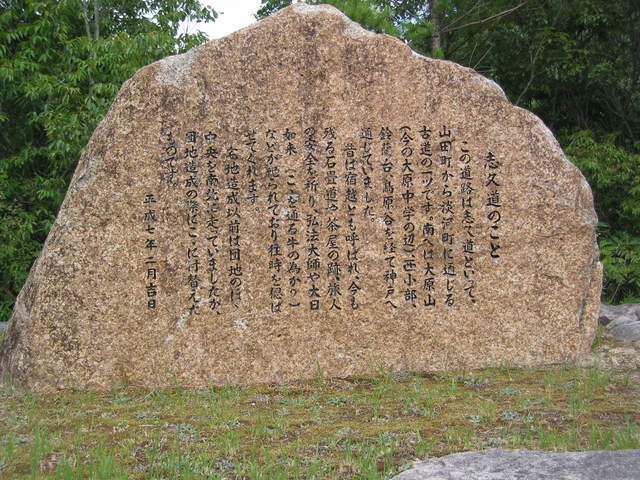 志久道のこと
この道路は志久道といって、
山田町から淡河町に通じる
古道の一ツです。南へは大原山
(今の大原中学の辺)西小部、
鈴蘭台、烏原谷を経て神戸へ
通じていました。
昔は宿越とも呼ばれ、今も
残る石畳道や茶屋の跡、旅人
の安全を祈り、弘法大師や大日
如来(ここを通る牛の為か)
などが祀られており往時を偲ば
せてくれます。
団地造成以前は団地のほゞ
中央を南北に走っていましたが、
団地造成の際にここに付替えた
ものです。
平成七年二月吉日